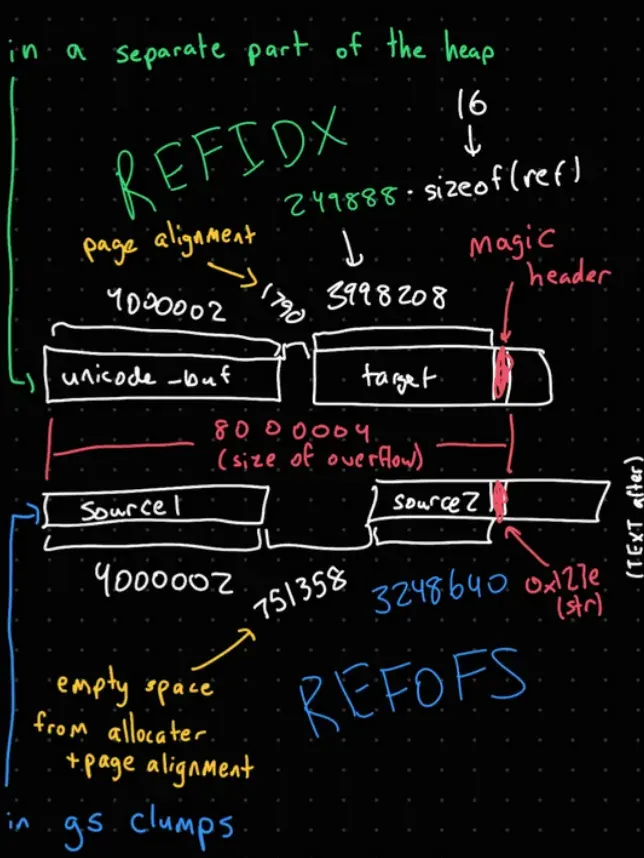 in a separate part of the heap
16
REFIDX
249888 · sizeof(ref)
page alignment
magic
header
4000002
1790
3998208
unicode_buf
target
8000004
(size of overflow)
source1
source2
(TEXT after)
4000002
751358
3248640
0x127e
(str)
empty space
from allocater
+page alignment
REFOFS
in gs clumps